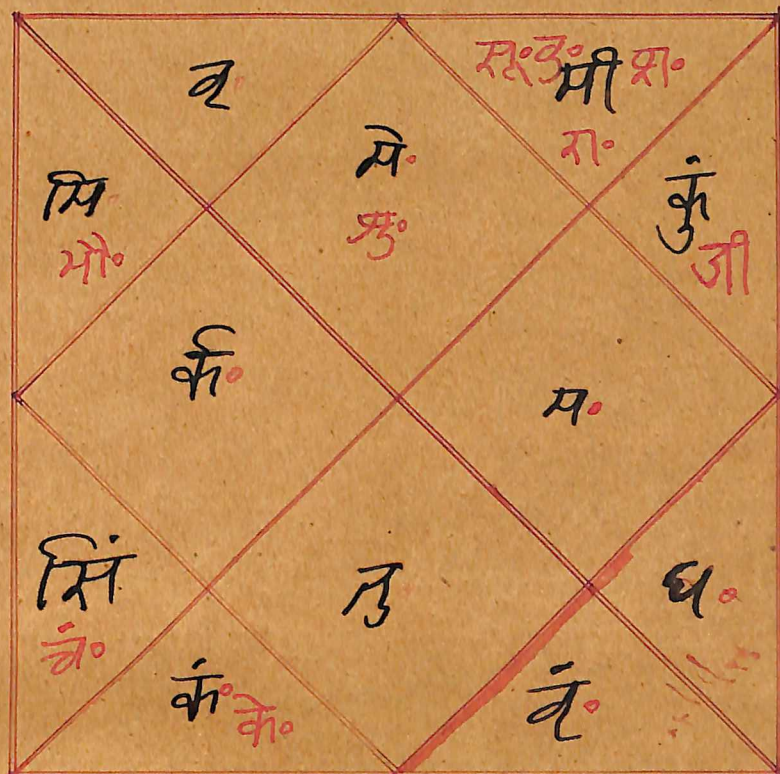 वृ
सू॰ बु॰ मी श॰
रा॰
मे॰
शु॰
मि
भौ॰
कुं
जी
र्क॰
म॰
सिं
चं॰
तु
ध॰
कं॰ के॰
वृं॰